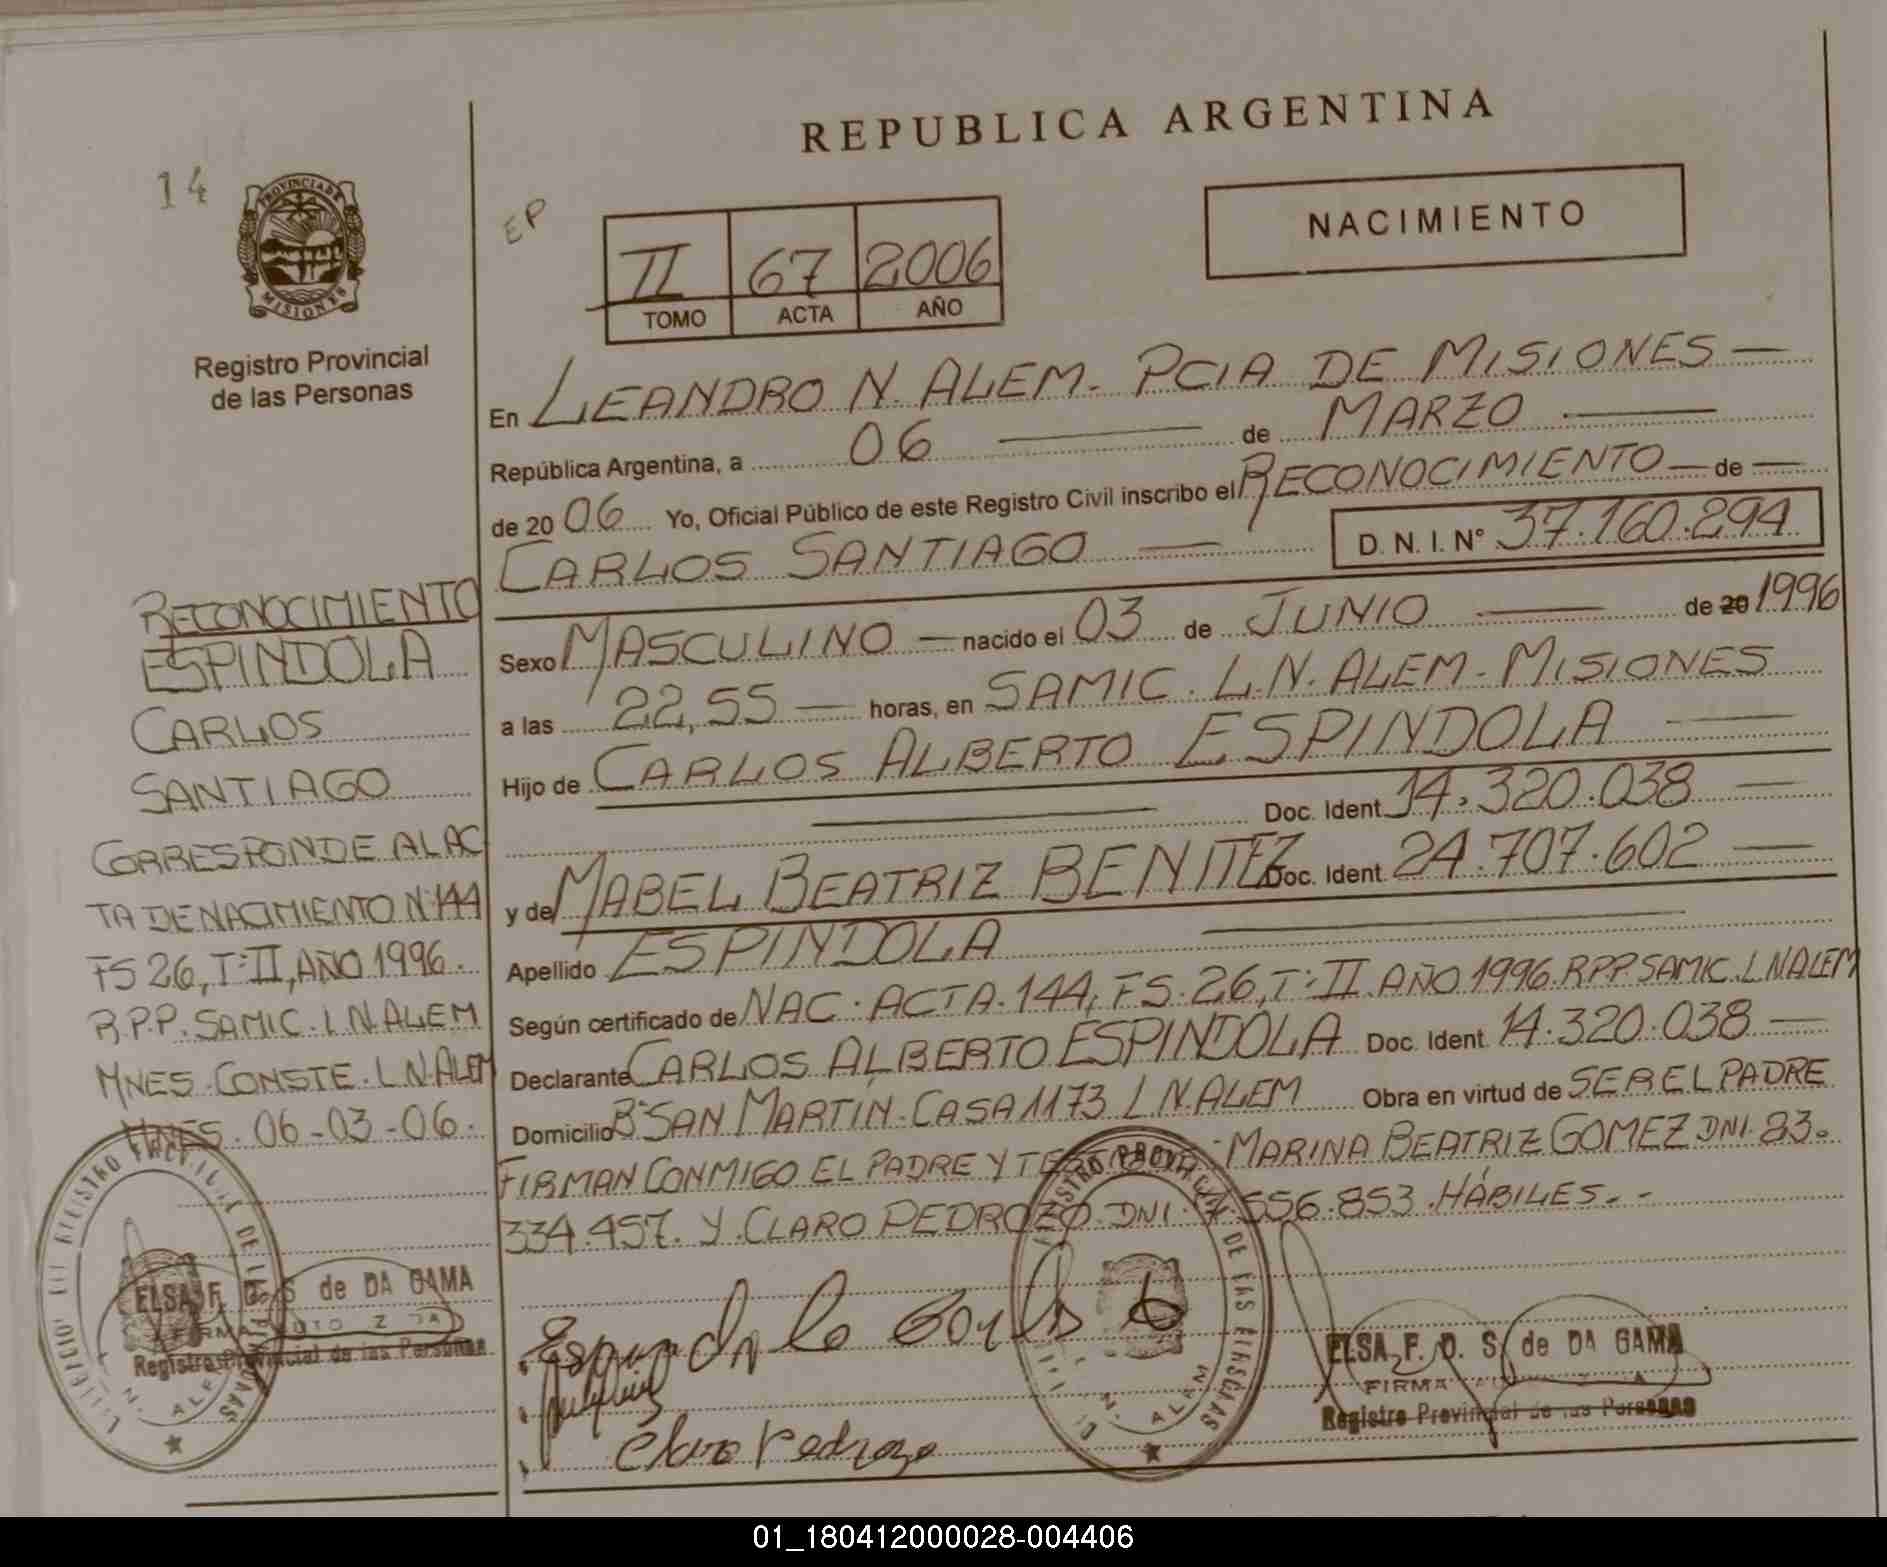 REPUBLICA ARGENTINA
14
PROVINCIA DE
MISIONES
Registro Provincial
de las Personas
EP
II 67 2006
TOMO ACTA AÑO
NACIMIENTO
En LEANDRO N. ALEM - PCIA DE MISIONES —
República Argentina, a 06 — de MARZO —
de 20 06 Yo, Oficial Público de este Registro Civil inscribo el RECONOCIMIENTO — de —
CARLOS SANTIAGO — D. N. I. N° 37.160.294
Sexo MASCULINO — nacido el 03 de JUNIO — de 20 1996
a las 22,55 — horas, en SAMIC. L.N. ALEM - MISIONES
Hijo de CARLOS ALBERTO ESPINDOLA —
— Doc. Ident. 14.320.038 —
y de MABEL BEATRIZ BENITEZ Doc. Ident. 24.707.602 —
Apellido ESPINDOLA —
Según certificado de NAC. ACTA. 144, FS. 26, T: II AÑO 1996. RPP. SAMIC. L N ALEM
Declarante CARLOS ALBERTO ESPINDOLA Doc. Ident. 14.320.038 —
Domicilio B° SAN MARTIN - CASA 1173 L N. ALEM Obra en virtud de SER EL PADRE
FIRMAN CONMIGO EL PADRE Y MARINA BEATRIZ GOMEZ DNI. 83.
334.457. Y CLARO PEDROZO. DNI. 556.853. HÁBILES. -
RECONOCIMIENTO
ESPINDOLA
CARLOS
SANTIAGO
CORRESPONDE AL AC
TA DE NACIMIENTO N° 144
FS 26, T: II, AÑO 1996.
R.P.P. SAMIC. L N ALEM
MNES. CONSTE. L N. ALEM
MNES. 06-03-06.
ELSA F. D. S de DA GAMA
FIRMA
Registro Provincial de las Personas
Espindola Carlos
Claro Pedrozo
REGISTRO PROVINCIAL DE LAS PERSONAS
N. ALEM
ELSA F. D. S. de DA GAMA
FIRMA
Registro Provincial de las Personas
01_180412000028-004406